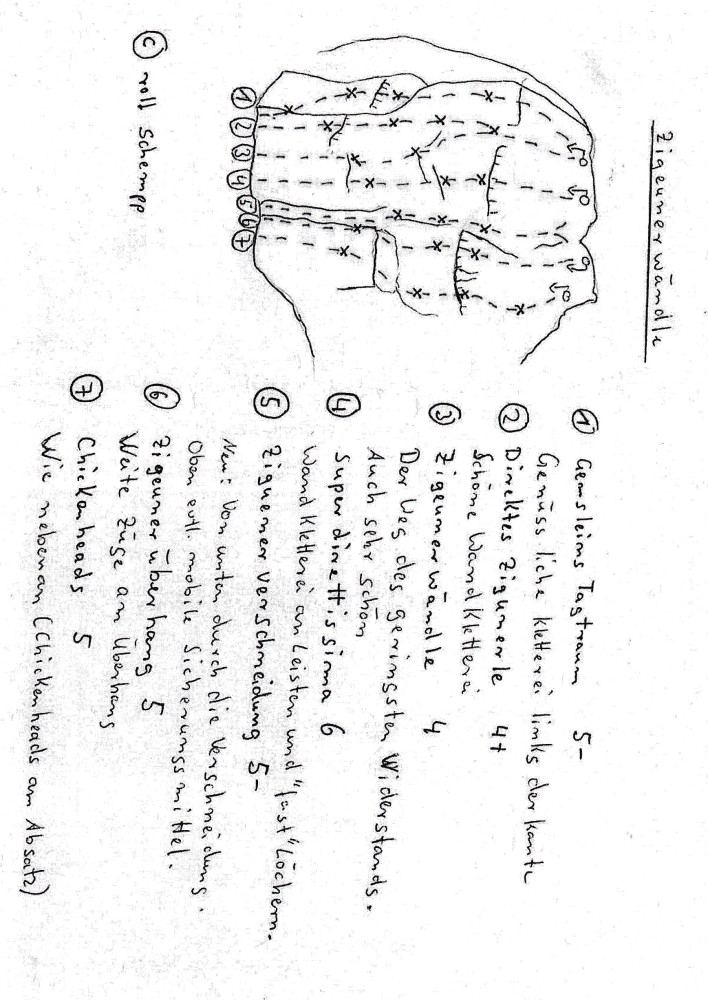 Zigeunerwändle
① ② ③ ④ ⑤ ⑥ ⑦
© rolf schempp
① Gemsleins Tagtraum 5-
Genüssliche Kletterei links der Kante
② Direktes Zigunerle 4+
Schöne Wandkletterei
③ Zigeunerwändle 4
Der Weg des geringsten Widerstands.
Auch sehr schön
④ Superdirettissima 6
Wandkletterei an Leisten und "fast" Löchern.
⑤ Ziguenerverschneidung 5-
Neu: Von unten durch die Verschneidung.
Oben evtl. mobile Sicherungsmittel.
⑥ Zigeunerüberhang 5
Weite Züge am Überhang
⑦ Chickenheads 5
Wie nebenan (Chickenheads am Absatz)